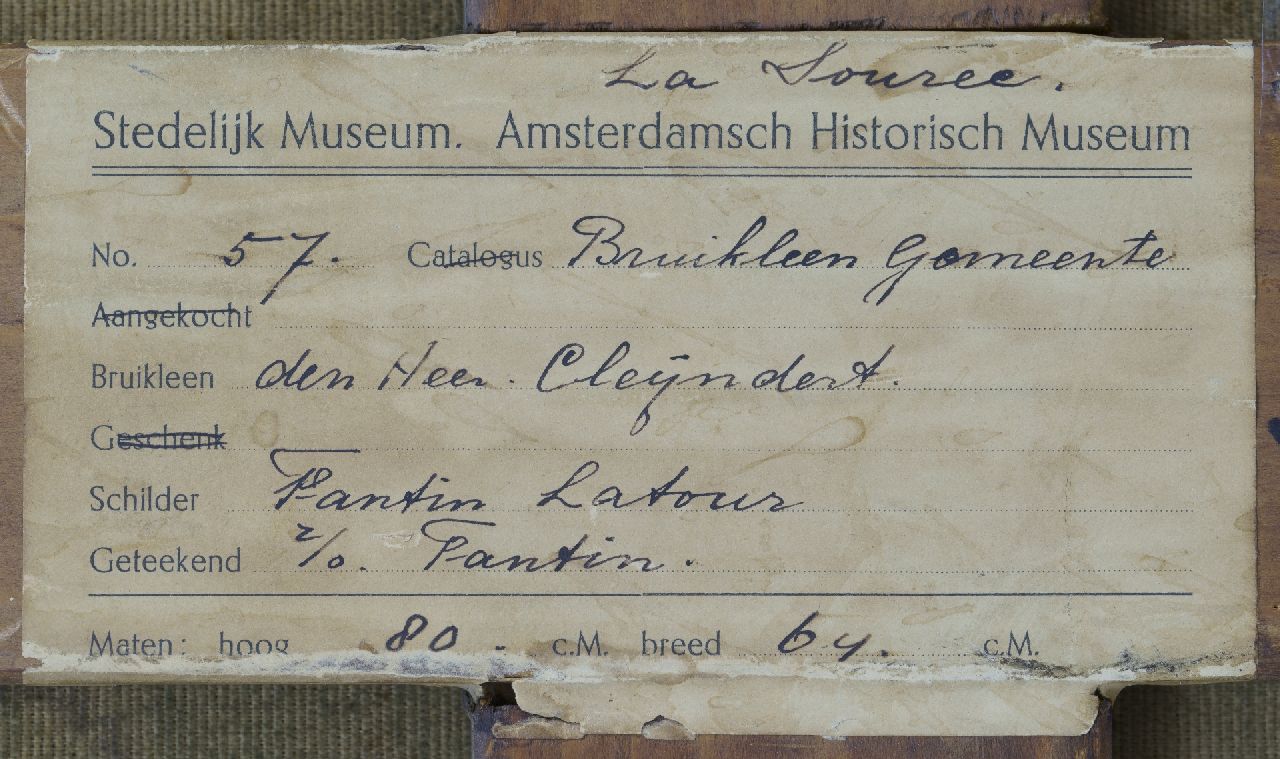 La Source.
Stedelijk Museum. Amsterdamsch Historisch Museum
No. 57. Catalogus Bruikleen Gemeente
Aangekocht
Bruikleen den Heer. Cleÿndert.
Geschenk
Schilder Fantin Latour
Geteekend r/o. Fantin.
Maten: hoog 80. c.M. breed 64. c.M.